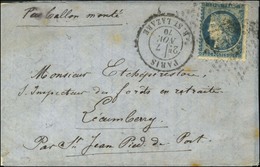 Par Ballon monté
PARIS
R. ST LAZARE
7
NOV.
70
Monsieur Etcheperestou
S. Inspecteur des forêts en retraite
Lécumberry
Par St. Jean Pied de Port